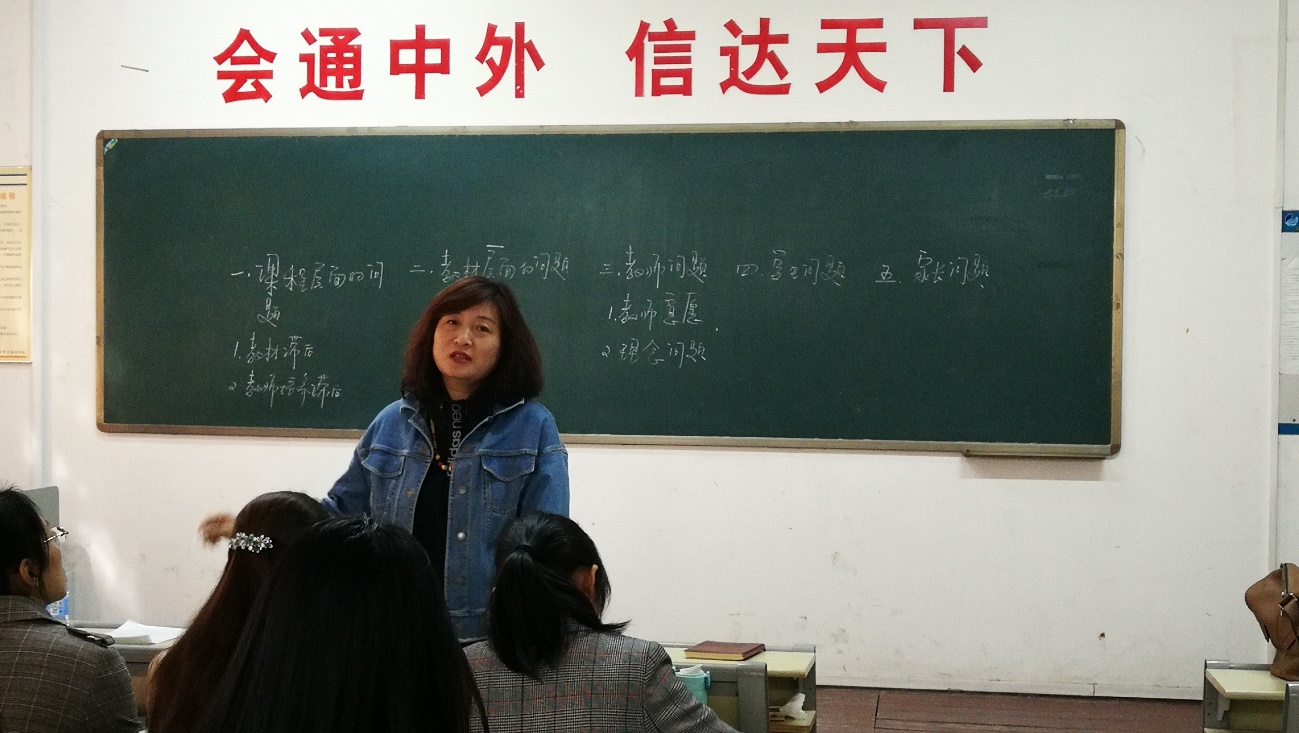 会通中外 信达天下
一.课程层面的问
题
1.教材滞后
2.教师培养滞后
二.教材层面的问题
三.教师问题
1.教师意愿.
2.理念问题
四.学生问题
五.家长问题
adidas neo